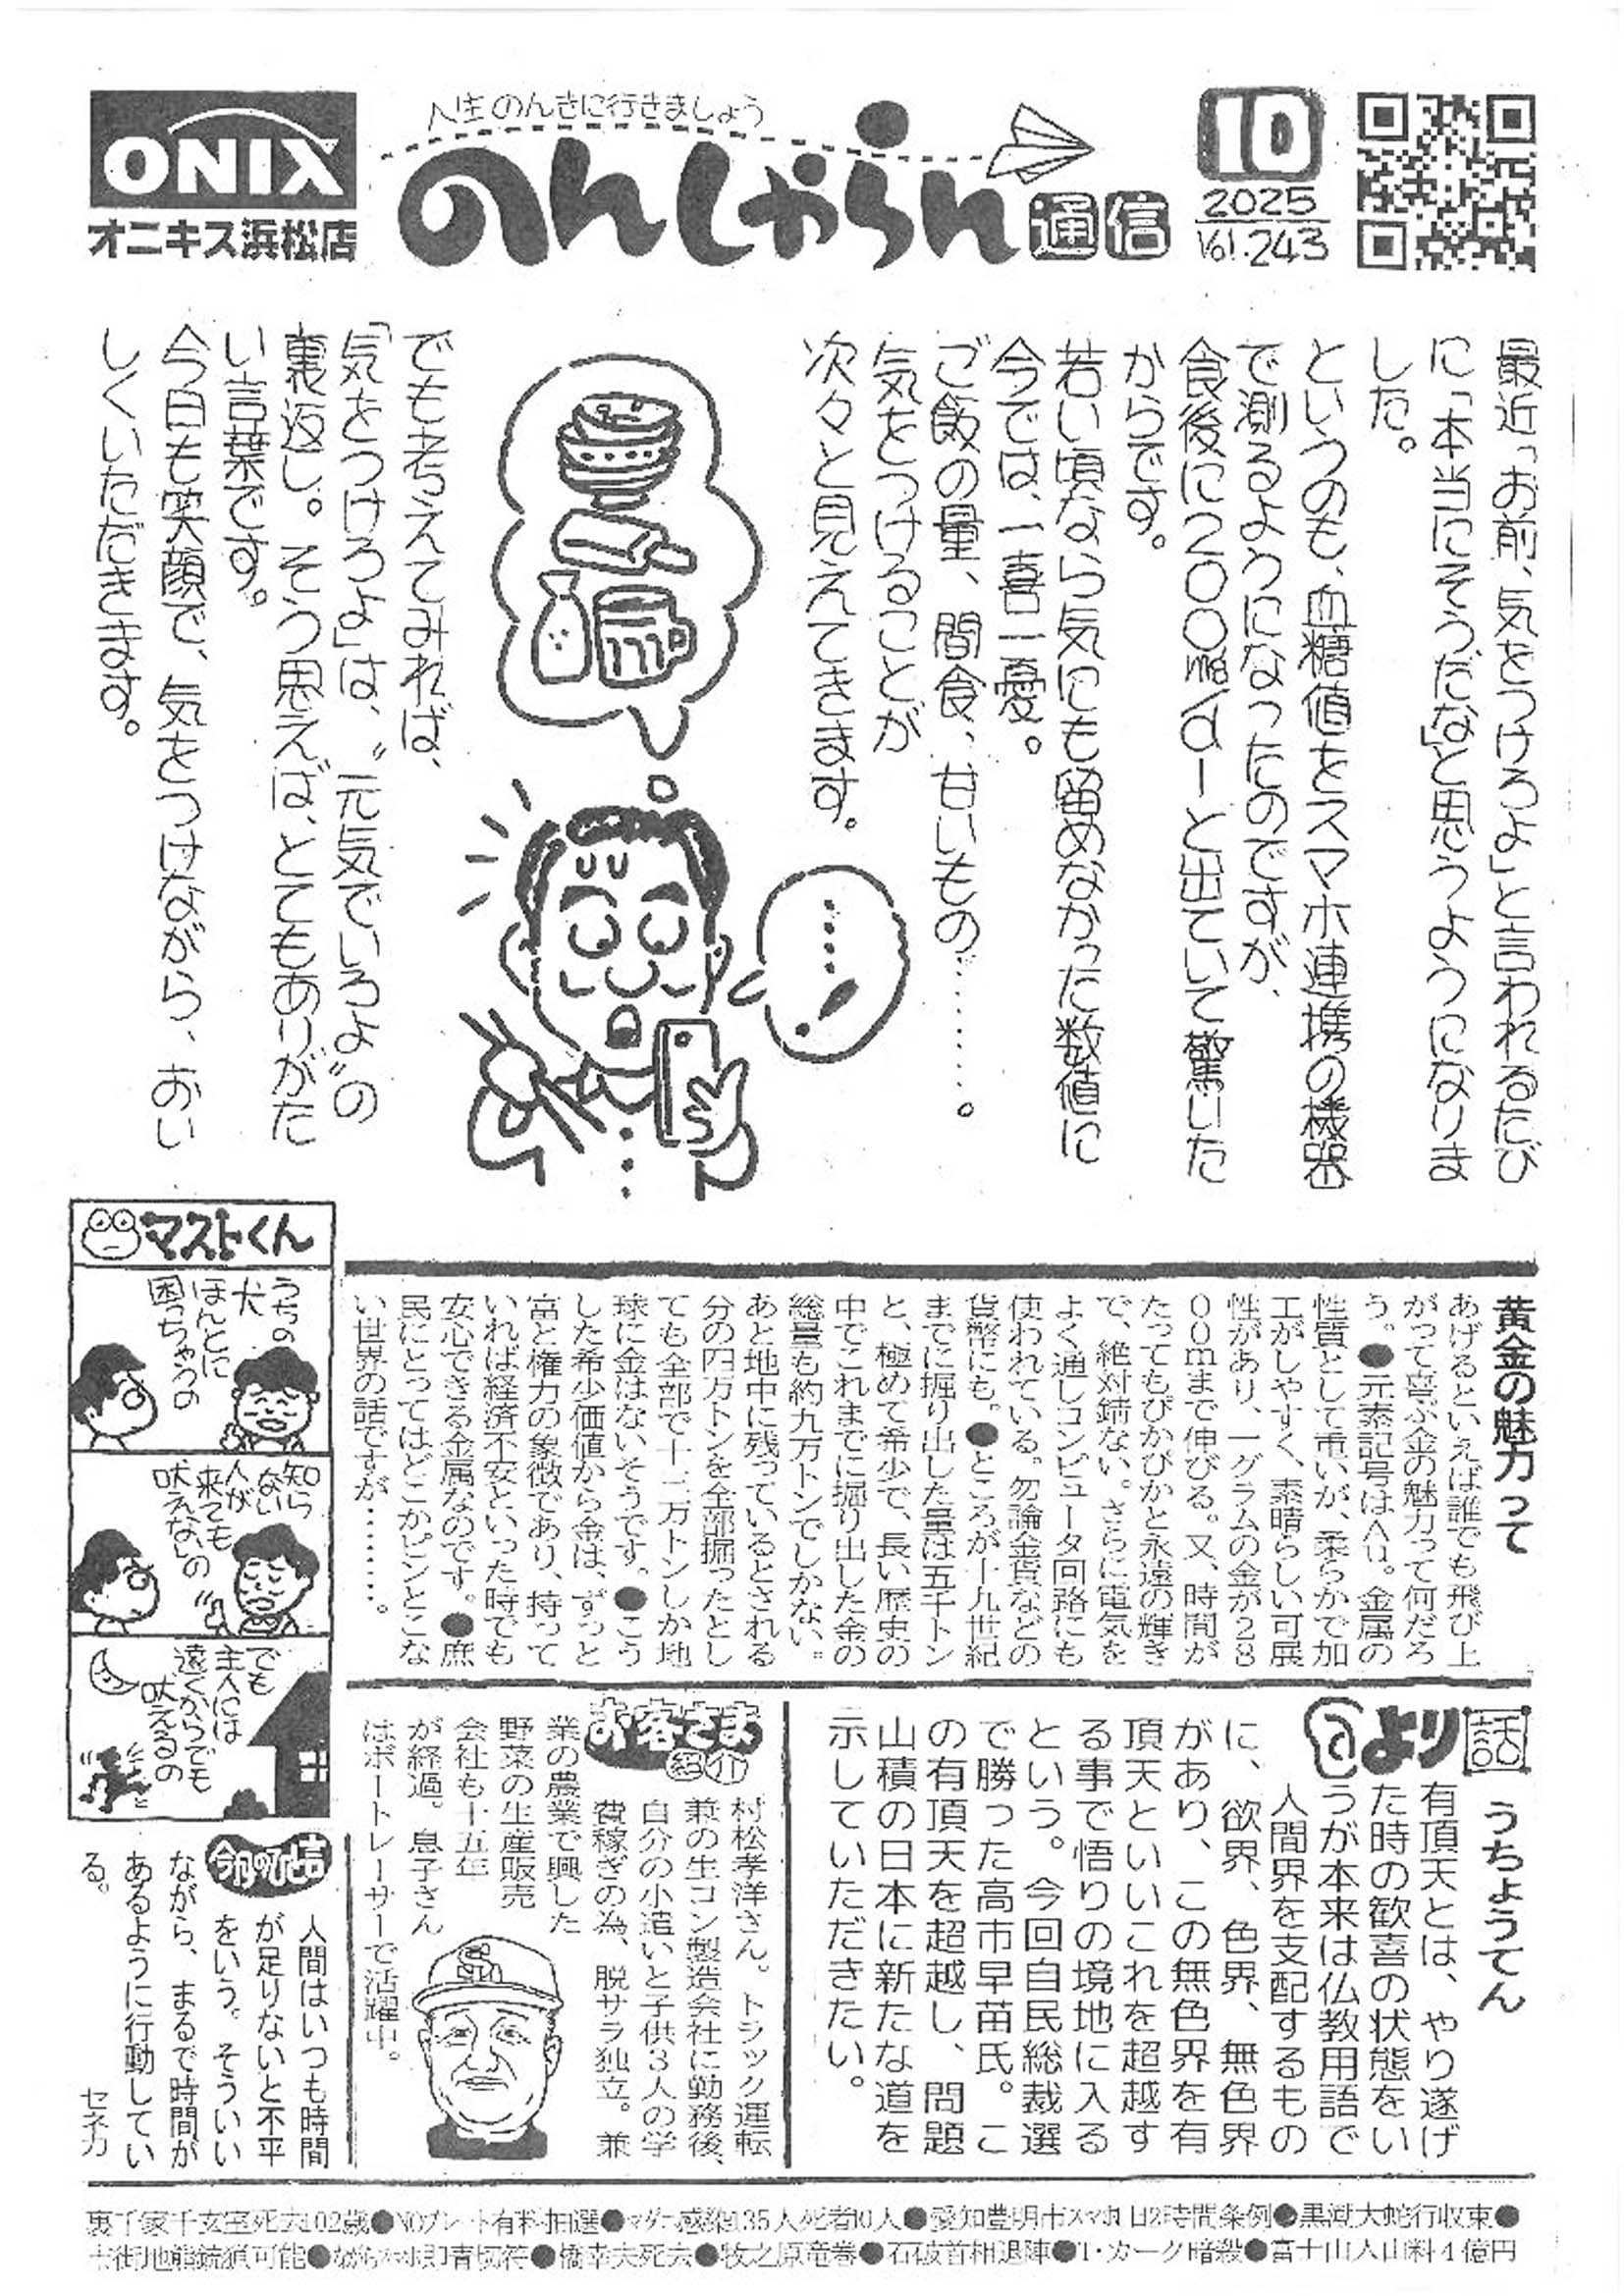 ONIX
オニキス浜松店
人生のんきに行きましょう
のんしゃらん通信
10
2025
Vol.243
最近「お前、気をつけろよ」と言われるたび
に「本当にそうだな」と思うようになりま
した。
というのも、血糖値をスマホ連携の機器
で測るようになったのですが、
食後に200mg/dlと出ていて驚いた
からです。
若い頃なら気にも留めなかった数値に
今では、一喜一憂。
ご飯の量、間食、甘いもの……。
気をつけることが
次々と見えてきます。
でも考えてみれば、
「気をつけろよ」は、〝元気でいろよ〟の
裏返し。そう思えば、とてもありがた
い言葉です。
今日も笑顔で、気をつけながら、おい
しくいただきます。
マストくん
うちの
犬
ほんとに
困っちゃうの
知ら
ない
人が
来ても
吠えないの
でも
主人には
遠くからでも
吠えるの
黄金の魅力って
あげるといえば誰でも飛び上
がって喜ぶ金の魅力って何だろ
う。●元素記号はAu。金属の
性質として重いが、柔らかで加
工がしやすく、素晴らしい可展
性があり、一グラムの金が28
00mまで伸びる。又、時間が
たってもぴかぴかと永遠の輝き
で、絶対錆ない。さらに電気を
よく通しコンピュータ回路にも
使われている。勿論金貨などの
貨幣にも。●ところが十九世紀
までに掘り出した量は五千トン
と、極めて希少で、長い歴史の
中でこれまでに掘り出した金の
総量も約九万トンでしかない。
あと地中に残っているとされる
分の四万トンを全部掘ったとし
ても全部で十三万トンしか地
球に金はないそうです。●こう
した希少価値から金は、ずっと
富と権力の象徴であり、持って
いれば経済不安といった時でも
安心できる金属なのです。●庶
民にとってはどこかピンとこな
い世界の話ですが………。
より話
うちょうてん
有頂天とは、やり遂げ
た時の歓喜の状態をい
うが本来は仏教用語で
人間界を支配するもの
に、欲界、色界、無色界
があり、この無色界を有
頂天といいこれを超越す
る事で悟りの境地に入る
という。今回自民総裁選
で勝った高市早苗氏。こ
の有頂天を超越し、問題
山積の日本に新たな道を
示していただきたい。
お客さま紹介
村松孝洋さん。トラック運転
兼の生コン製造会社に勤務後、
自分の小遣いと子供3人の学
費稼ぎの為、脱サラ独立。兼
業の農業で興した
野菜の生産販売
会社も十五年
が経過。息子さん
はボートレーサーで活躍中。
今月のひと言
人間はいつも時間
が足りないと不平
をいう。そういい
ながら、まるで時間が
あるように行動してい
る。
セネカ
裏千家千玄室死去102歳●NOプレート有料抽選●マダニ感染135人死者10人●愛知豊明市スマホ1日2時間条例●黒潮大蛇行収束●
市街地熊銃猟可能●ながらスマホ即青切符●橋幸夫死去●牧之原竜巻●石破首相退陣●T・カーク暗殺●富士山入山料4億円